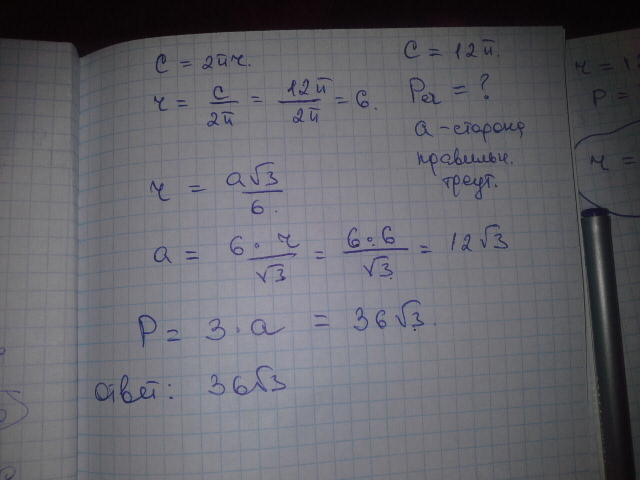 C = 2πr.
r = C/2π = 12π/2π = 6.
C = 12π.
P = ?
a - сторона
правильн.
треуг.
r = a√3/6.
a = 6·r/√3 = 6·6/√3 = 12√3
P = 3·a = 36√3.
Ответ: 36√3
r = 12
P =
r =